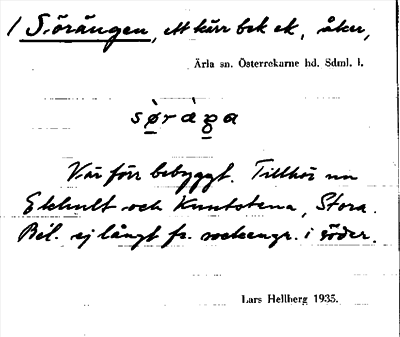 1 Sörängen, ett kärr bek ek, åker,
Ärla sn. Österrekarne hd. Sdml. l.
sø̀ràŋa
Var förr bebyggt. Tillhör nu
Ekhult och Kuntstena, Stora.
Bel. ej långt fr. sockengr. i söder.
Lars Hellberg 1935.